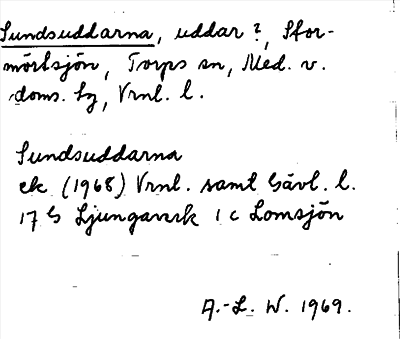 Sundsuddarna, uddar?, Stor-
mörtsjön, Torps sn, Med. v.
doms. hg, Vrnl. l.
Sundsuddarna
ek (1968) Vrnl. samt Gävl. l.
17 G Ljungaverk 1 c Lomsjön
A.-L. W. 1969.